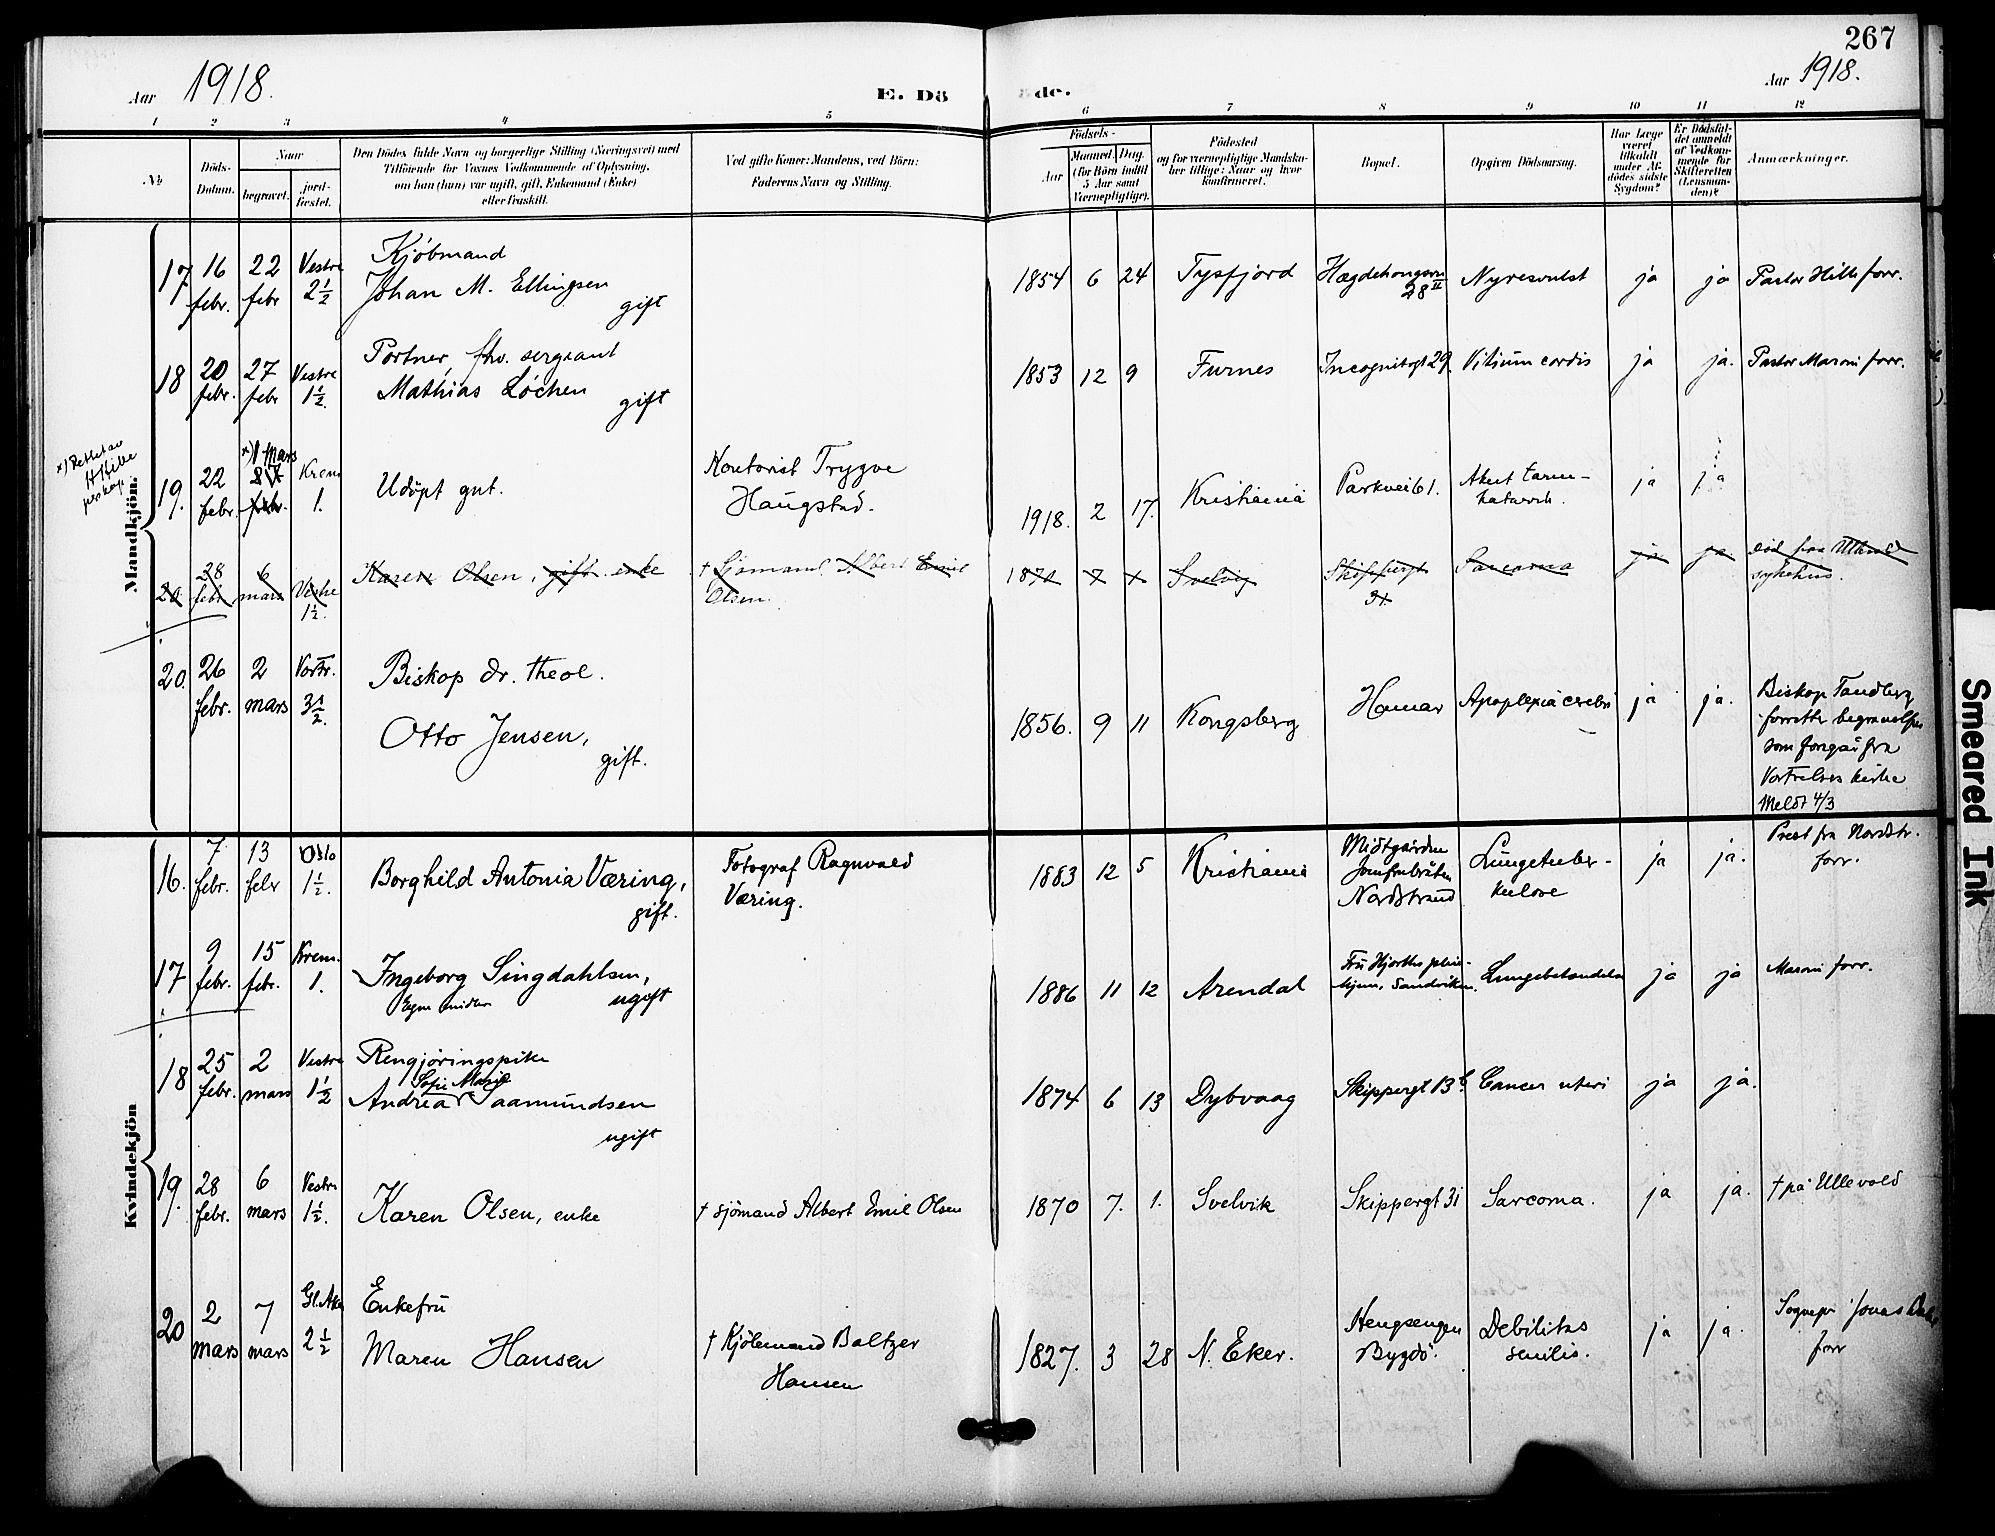 267
Aar 1918.
E. Dö
de.
Aar 1918.
1 2 3 4 5 6 7 8 9 10 11 12
No
Döds-
Datum.
Naar
begravet.
jord-
fæstet.
Den Dödes fulde Navn og borgerlige Stilling (Næringsvei) med
Tilföiende for Voxnes Vedkommende af Oplysning,
om han (hun) var ugift, gift, Enkemand (Enke)
eller fraskilt.
Ved gifte Koner: Mandens, ved Börn:
Faderens Navn og Stilling.
Födsels-
Aar
Maaned. Dag.
(for Börn indtil
5 Aar samt
Værnepligtige).
Födested
og for værnepligtige Mandska-
ber tillige: Naar og hvor
konfirmeret.
Bopæl.
Opgiven Dödsaarsag.
Har Læge
været
tilkaldt
under Af-
dödes sidste
Sygdom?
Er Dödsfal-
det anmeldt
af Vedkom-
mende for
Skifteretten
(Lensman-
den)?
Anmærkninger.
Mandkjön.
17. 16 febr. 22 febr Vestre 2 1/2
Kjöbmand
Johan M. Ellingsen
gift
1854 6 24 Tysfjord Hægdehaugsvn 28 II Nyresvulst ja ja Pastor Hille forr.
18 20 febr. 27 febr Vestre 1 1/2.
Portner, fhv. sergeant
Mathias Löchen
gift
1853 12 9 Furnes Incognitogt 29. Vitium cordis ja ja. Pastor Maroni forr.
x) Rettet av
H Hille
19. 22 febr. x) 1 Mars febr. Krem 1.
Udöpt gut.
Kontorist Trygve
Haugstad.
1918. 2 17. Kristiania Parkvei 61. Akut tarm-
katarrh. ja ja
20. 28 febr 6 mars Vestre 1 1/2.
Karen Olsen, gift. enke
† Sjömand Albert Emil
Olsen.
187 7 1 Svelvig Skippergt
31. Sarcoma ja ja död fra Ullevål
sykehus.
20. 26 febr. 2 mars Vorfr. 3 1/2.
Biskop dr. theol.
Otto Jensen,
gift.
1856. 9 11 Kongsberg Hamar Apoplexia cerebri ja ja.
Biskop Tandberg
forrettet begravelsen
som foregår fra
Vor Frelsers kirke
Meldt 4/3
Kvindekjön
16. 7 febr. 13 febr Oslo 1 1/2.
Borghild Antonia Væring,
gift.
Fotograf Ragnvald
Væring.
1883 12 5 Kristiania Midtgården
Jomfrubråten
Nordstrand
Lungetuber-
kulose
ja ja. Prest fra Nordstr.
forr.
17 9 febr. 15 febr. Krem. 1.
Ingeborg Singdahlsen,
Egne midler
ugift
1886 11 12 Arendal Fru Hjorths pleie-
hjem, Sandviken. Lungebetændelse ja ja Maroni forr.
18 25 febr. 2 mars Vestre 1 1/2
Rengjöringspike
Sofie Marie
Andrea Saamundsen
ugift
1874 6 13 Dybvaag Skippergt 13 b Cancer uteri ja ja.
19. 28 febr. 6 mars Vestre 1 1/2.
Karen Olsen, enke
† sjömand Albert Emil Olsen
1870 7. 1. Svelvik Skippergt 31 Sarcoma. ja ja. † på Ullevold
20 2 mars 7 mars Gl. Aker 2 1/2
Enkefru
Maren Hansen
† Kjöbmand Baltzer
Hansen
1827. 3 28 N. Eker. Hengsengen
Bygdö. Debilitas
senilis. ja ja. Sognepr Jonas Dahl
forr
Smeared Ink